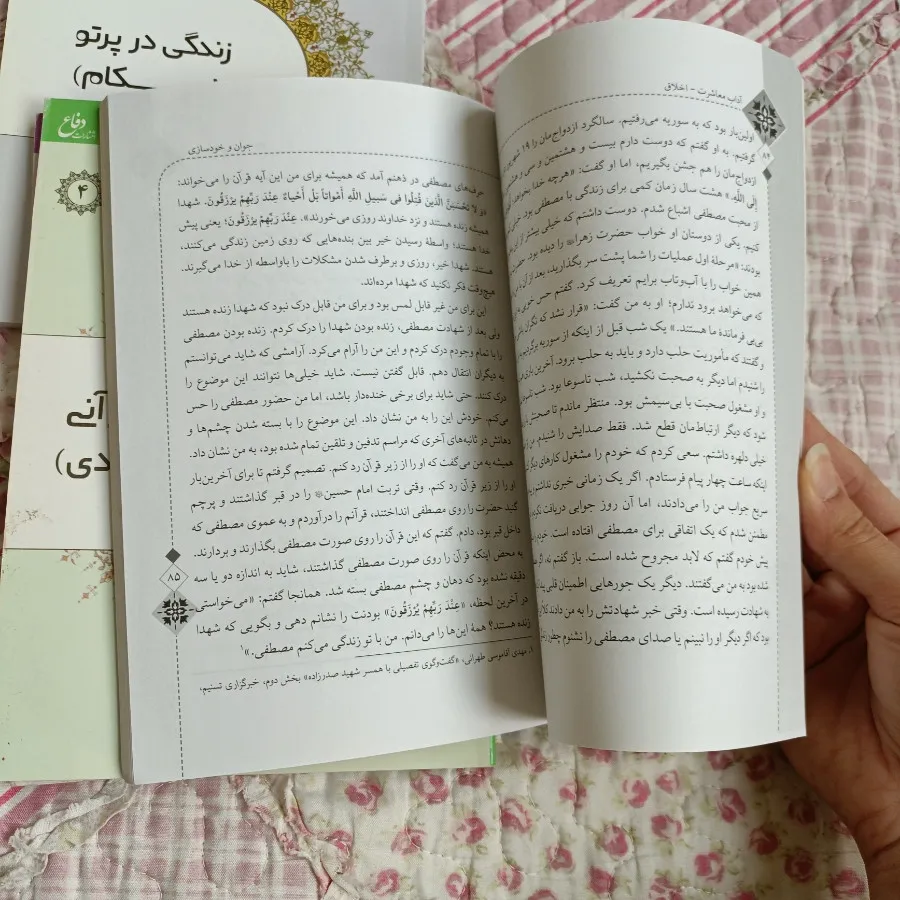 زندگی در پرتو
کام)
دفاع
۴
آنے
دی)
آداب معاشرت - اخلاق
۸۴
اولین‌بار بود که به سوریه می‌رفتیم. سالگرد ازدواج‌مان را ۱۹ شهریور
گرفتیم. به او گفتم که دوست دارم بیست و هشتمین و سی و هشتمین
ازدواج‌مان را هم جشن بگیریم، اما او گفت: «هرچه خدا بخواهد
إلی اللّه.» هشت سال زمان کمی برای زندگی با مصطفی بود.
از محبت مصطفی اشباع شدم. دوست داشتم که خیلی بیشتر از این
کنیم. یکی از دوستان او خواب حضرت زهرا را دیده بود. حضرت
بودند: «مرحلهٔ اول عملیات را شما پشت سر بگذارید، بعد از آن با
همین خواب را با آب‌وتاب برایم تعریف کرد. گفتم حس خوبی
که می‌خواهد برود ندارم؛ او به من گفت: «قرار نشد که نگران
بی‌بی فرماندهٔ ما هستند.» یک شب قبل از اینکه از سوریه برگردیم
و گفتند که مأموریت حلب دارد و باید به حلب برود. آخرین‌باری
را شنیدم اما دیگر به صحبت نکشید، شب تاسوعا بود. شب
و او مشغول صحبت با بی‌سیمش بود. منتظر ماندم تا صحبتش
شود که دیگر ارتباط‌مان قطع شد. فقط صدایش را شنیدم.
خیلی دلهره داشتم. سعی کردم که خودم را مشغول کارهای دیگر
اینکه ساعت چهار پیام فرستادم. اگر یک زمانی خبری نداشتم
سریع جواب من را می‌دادند، اما آن روز جوابی دریافت
مطمئن شدم که یک اتفاقی برای مصطفی افتاده است.
پیش خودم گفتم که لابد مجروح شده است. باز گفتم نه، اگر
شده بود به من می‌گفتند. دیگر یک جورهایی اطمینان قلبی
به شهادت رسیده است. وقتی خبر شهادتش را به من دادند
بود که اگر دیگر او را نبینم یا صدای مصطفی را نشنوم چطور
جوان و خودسازی
حرف‌های مصطفی در ذهنم آمد که همیشه برای من این آیه قرآن را می‌خواند:
«و لا تَحْسَبَنَّ الَّذینَ قُتِلُوا فی سَبیلِ اللَّهِ أَمْواتاً بَلْ أَحْیاءٌ عِنْدَ رَبِّهِمْ یُرْزَقُونَ. شهدا
همیشه زنده هستند و نزد خداوند روزی می‌خورند». عِنْدَ رَبِّهِمْ یُرْزَقُونَ؛ یعنی پیش
خدا هستند؛ واسطهٔ رسیدن خیر بین بنده‌هایی که روی زمین زندگی می‌کنند،
هستند. شهدا خیر، روزی و برطرف شدن مشکلات را باواسطه از خدا می‌گیرند.
هیچ‌وقت فکر نکنید که شهدا مرده‌اند.
این برای من غیر قابل لمس بود و برای من قابل درک نبود که شهدا زنده هستند
ولی بعد از شهادت مصطفی، زنده بودن شهدا را درک کردم. زنده بودن مصطفی
را با تمام وجودم درک کردم و این من را آرام می‌کرد. آرامشی که شاید می‌توانستم
به دیگران انتقال دهم. قابل گفتن نیست. شاید خیلی‌ها نتوانند این موضوع را
درک کنند. حتی شاید برای برخی خنده‌دار باشد، اما من حضور مصطفی را حس
می‌کنم. خودش این را به من نشان داد. این موضوع را با بسته شدن چشم‌ها و
دهانش در ثانیه‌های آخری که مراسم تدفین و تلقین تمام شده بود، به من نشان داد.
همیشه به من می‌گفت که او را از زیر قرآن رد کنم. تصمیم گرفتم تا برای آخرین‌بار
او را از زیر قرآن رد کنم. وقتی تربت امام حسین را در قبر گذاشتند و پرچم
گنبد حضرت را روی مصطفی انداختند، قرآنم را درآوردم و به عموی مصطفی که
داخل قبر بود، دادم. گفتم که این قرآن را روی صورت مصطفی بگذارند و بردارند.
به محض اینکه قرآن را روی صورت مصطفی گذاشتند، شاید به اندازه دو یا سه
دقیقه نشده بود که دهان و چشم مصطفی بسته شد. همانجا گفتم: «می‌خواستی
در آخرین لحظه، «عِنْدَ رَبِّهِمْ یُرْزَقُونَ» بودنت را نشانم دهی و بگویی که شهدا
زنده هستند؟ همهٔ این‌ها را می‌دانم. من با تو زندگی می‌کنم مصطفی.»۱
۱. مهدی آقاموسی طهرانی، «گفت‌وگوی تفصیلی با همسر شهید صدرزاده» بخش دوم، خبرگزاری تسنیم.
۸۵